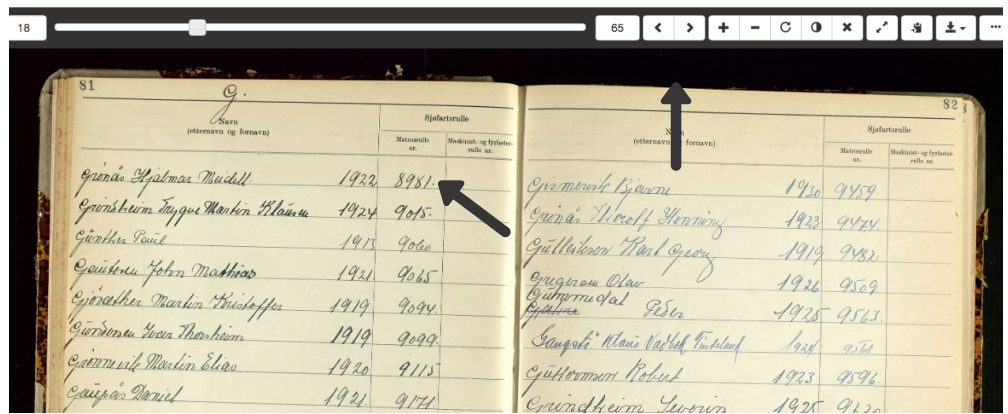 18 65
81
G.
Navn
(etternavn og fornavn)
Sjøfartsrulle
Matrosrulle
nr.
Maskinist- og fyrbøter-
rulle nr.
Grönås Hjalmar Meidell 1922 8981.
Grindheim Trygve Martin Klausen 1924 9015.
Günther Paul 1913 9060
Gautesen John Mathias 1921 9065
Gjösæther Martin Kristoffer 1919 9094.
Gundersen Ivar Thorsheim 1919 9099.
Grønnevik Martin Elias 1920 9115
Gaupås Daniel 1921 9171
82
Navn
(etternavn og fornavn)
Sjøfartsrulle
Matrosrulle
nr.
Maskinist- og fyrbøter-
rulle nr.
Gismervik Bjarne 1930 9459
Grönås Thorolf Henning 1923 9474.
Gulleiksen Karl Georg 1919 9482.
Gregersen Olav 1926 9509
Peder 1925 9563.
Gangstö Klaus 1924 9568
Guttormsen Robert 1923 9596.
Grindheim Severin 1925